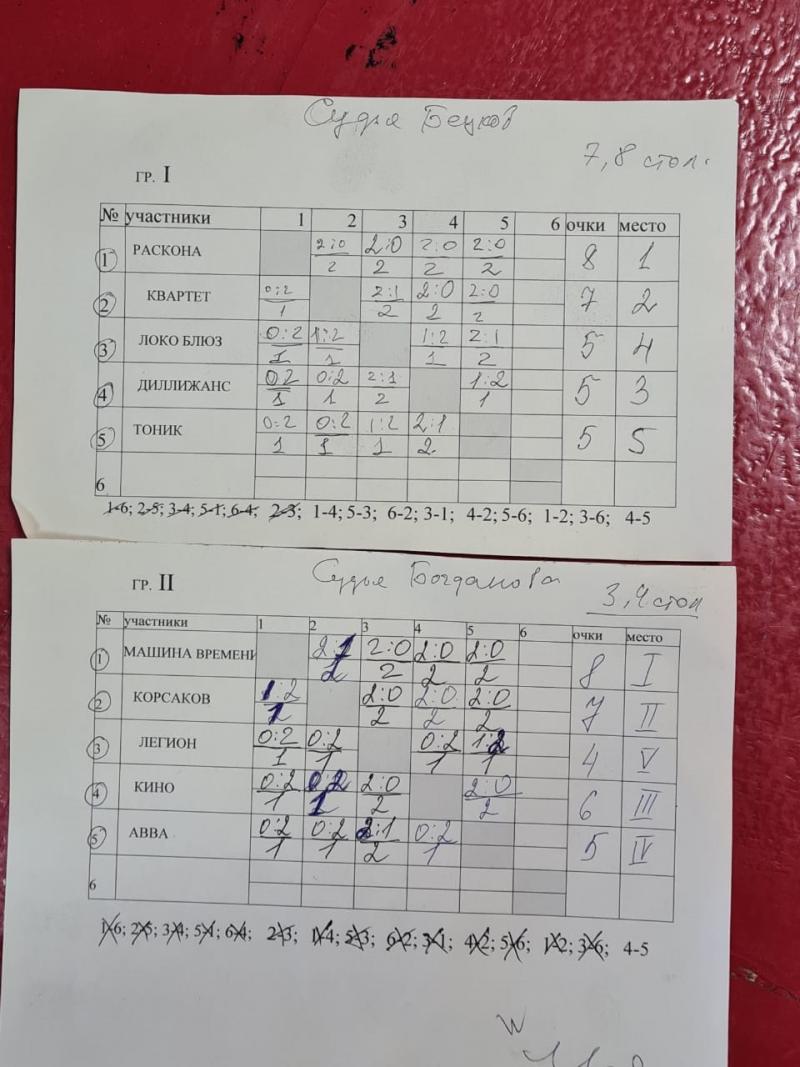 Судья Бецков
7,8 стол.
ГР. I
№ участники 1 2 3 4 5 6 очки место
1 РАСКОНА 2:0 2:0 2:0 2:0 8 1
2 2 2 2
2 КВАРТЕТ 0:2 2:1 2:0 2:0 7 2
1 2 2 2
3 ЛОКО БЛЮЗ 0:2 1:2 1:2 2:1 5 4
1 1 1 2
4 ДИЛЛИЖАНС 0:2 0:2 2:1 1:2 5 3
1 1 2 1
5 ТОНИК 0:2 0:2 1:2 2:1 5 5
1 1 1 2
6
1-6; 2-5; 3-4; 5-1; 6-4; 2-3; 1-4; 5-3; 6-2; 3-1; 4-2; 5-6; 1-2; 3-6; 4-5
Судья Богданова
3,4 стол
ГР. II
№ участники 1 2 3 4 5 6 очки место
1 МАШИНА ВРЕМЕНИ 2:1 2:0 2:0 2:0 8 I
2 2 2 2
2 КОРСАКОВ 1:2 2:0 2:0 2:0 7 II
1 2 2 2
3 ЛЕГИОН 0:2 0:2 0:2 1:2 4 V
1 1 1 1
4 КИНО 0:2 0:2 2:0 2:0 6 III
1 1 2 2
5 АВВА 0:2 0:2 2:1 0:2 5 IV
1 1 2 1
6
1-6; 2-5; 3-4; 5-1; 6-4; 2-3; 1-4; 5-3; 6-2; 3-1; 4-2; 5-6; 1-2; 3-6; 4-5